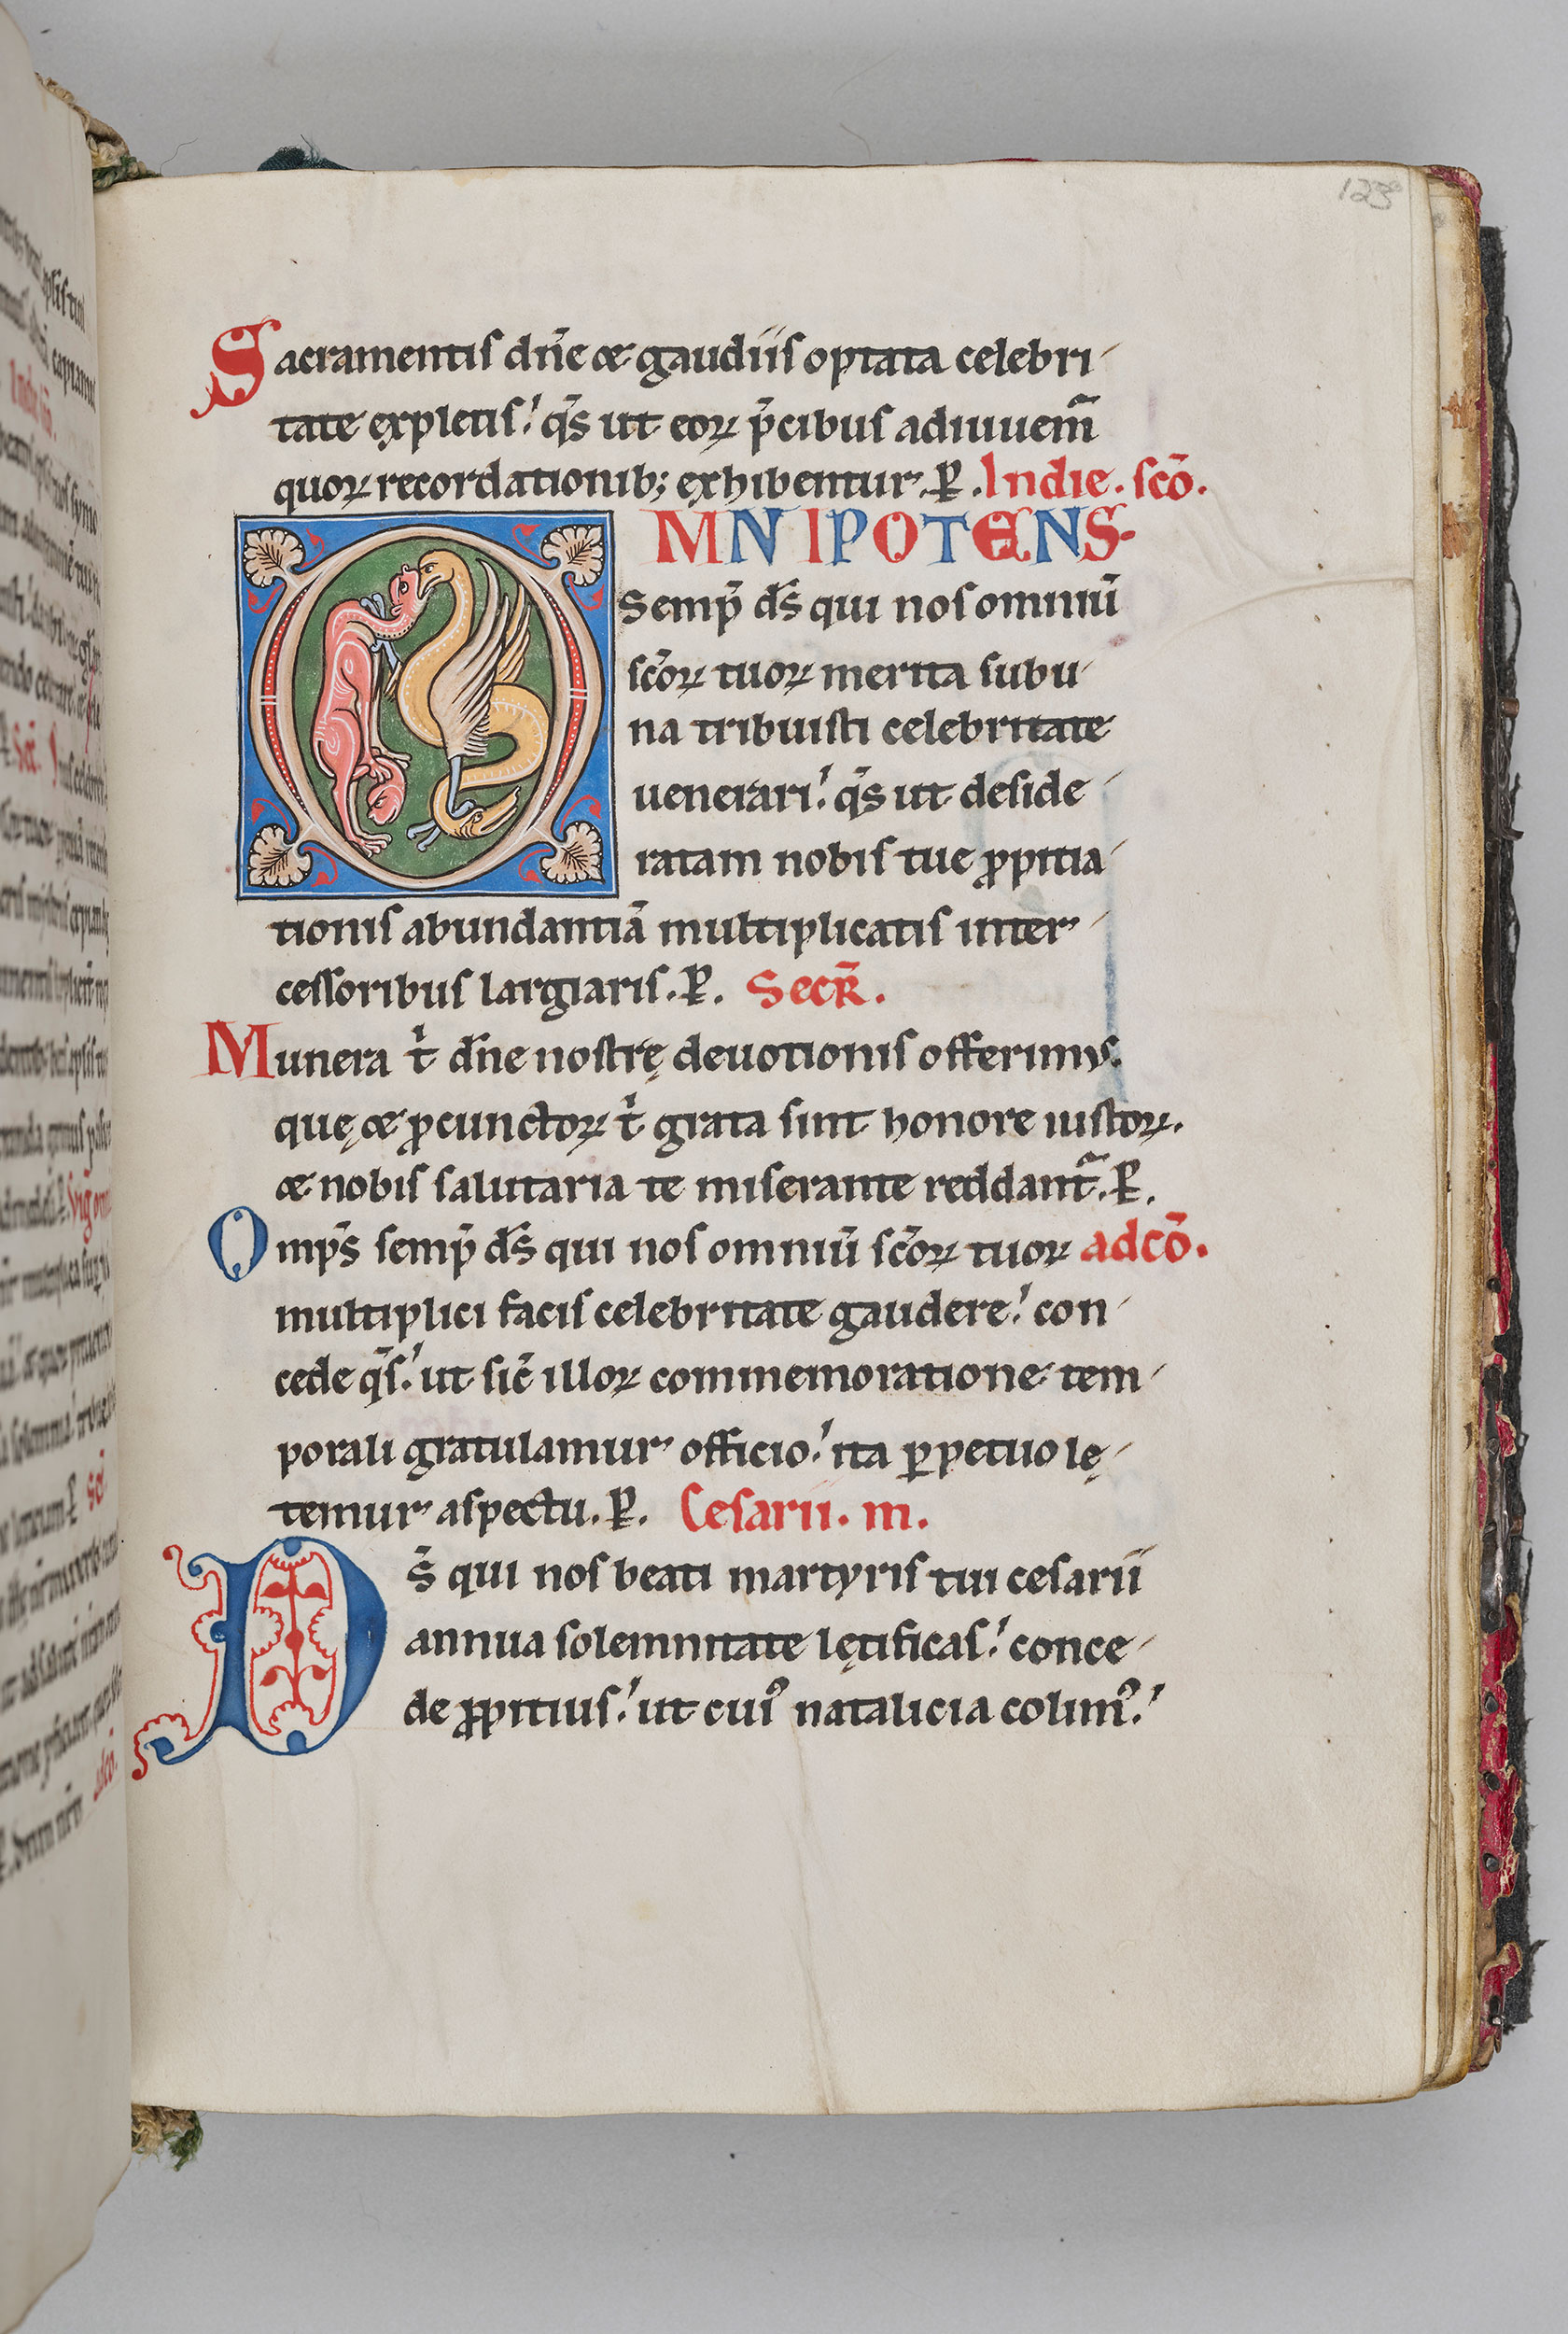 123
Sacramentis dñe & gaudiis optata celebri
tate expletis! q̄s ut eoꝝ p̄cibus adiuuem̃
quoꝝ recordationib; exhibentur. P̱. In die. scõ.
OMNIPOTENS
Semp̄ dš qui nos omniū
scōꝝ tuoꝝ merita sub u
na tribuisti celebritate
uenerari! q̄s ut deside
ratam nobis tue ꝓpitia
tionis abundantiā multiplicatis inter
cessoribus largiaris. P̱. SECR̄.
Munera t̓ dñe nostrę deuotionis offerimus.
quę & ꝓ cunctoꝝ t̓ grata sint honore iustoꝝ.
& nobis salutaria te miserante reddant̃. P̱.
Omp̄s semp̄ dš qui nos omniū scōꝝ tuoꝝ ad cō.
multiplici facis celebritate gaudere! con
cede q̄s! ut sic̄ illoꝝ commemoratione tem
porali gratulamur officio! ita ꝑpetuo lę
temur aspectu. P̱. Cesarii. m.
Dš qui nos beati martyris tui cesarii
annua solemnitate lętificas! conce
de ꝓpitius! ut cuiꝰ natalicia colimꝰ!